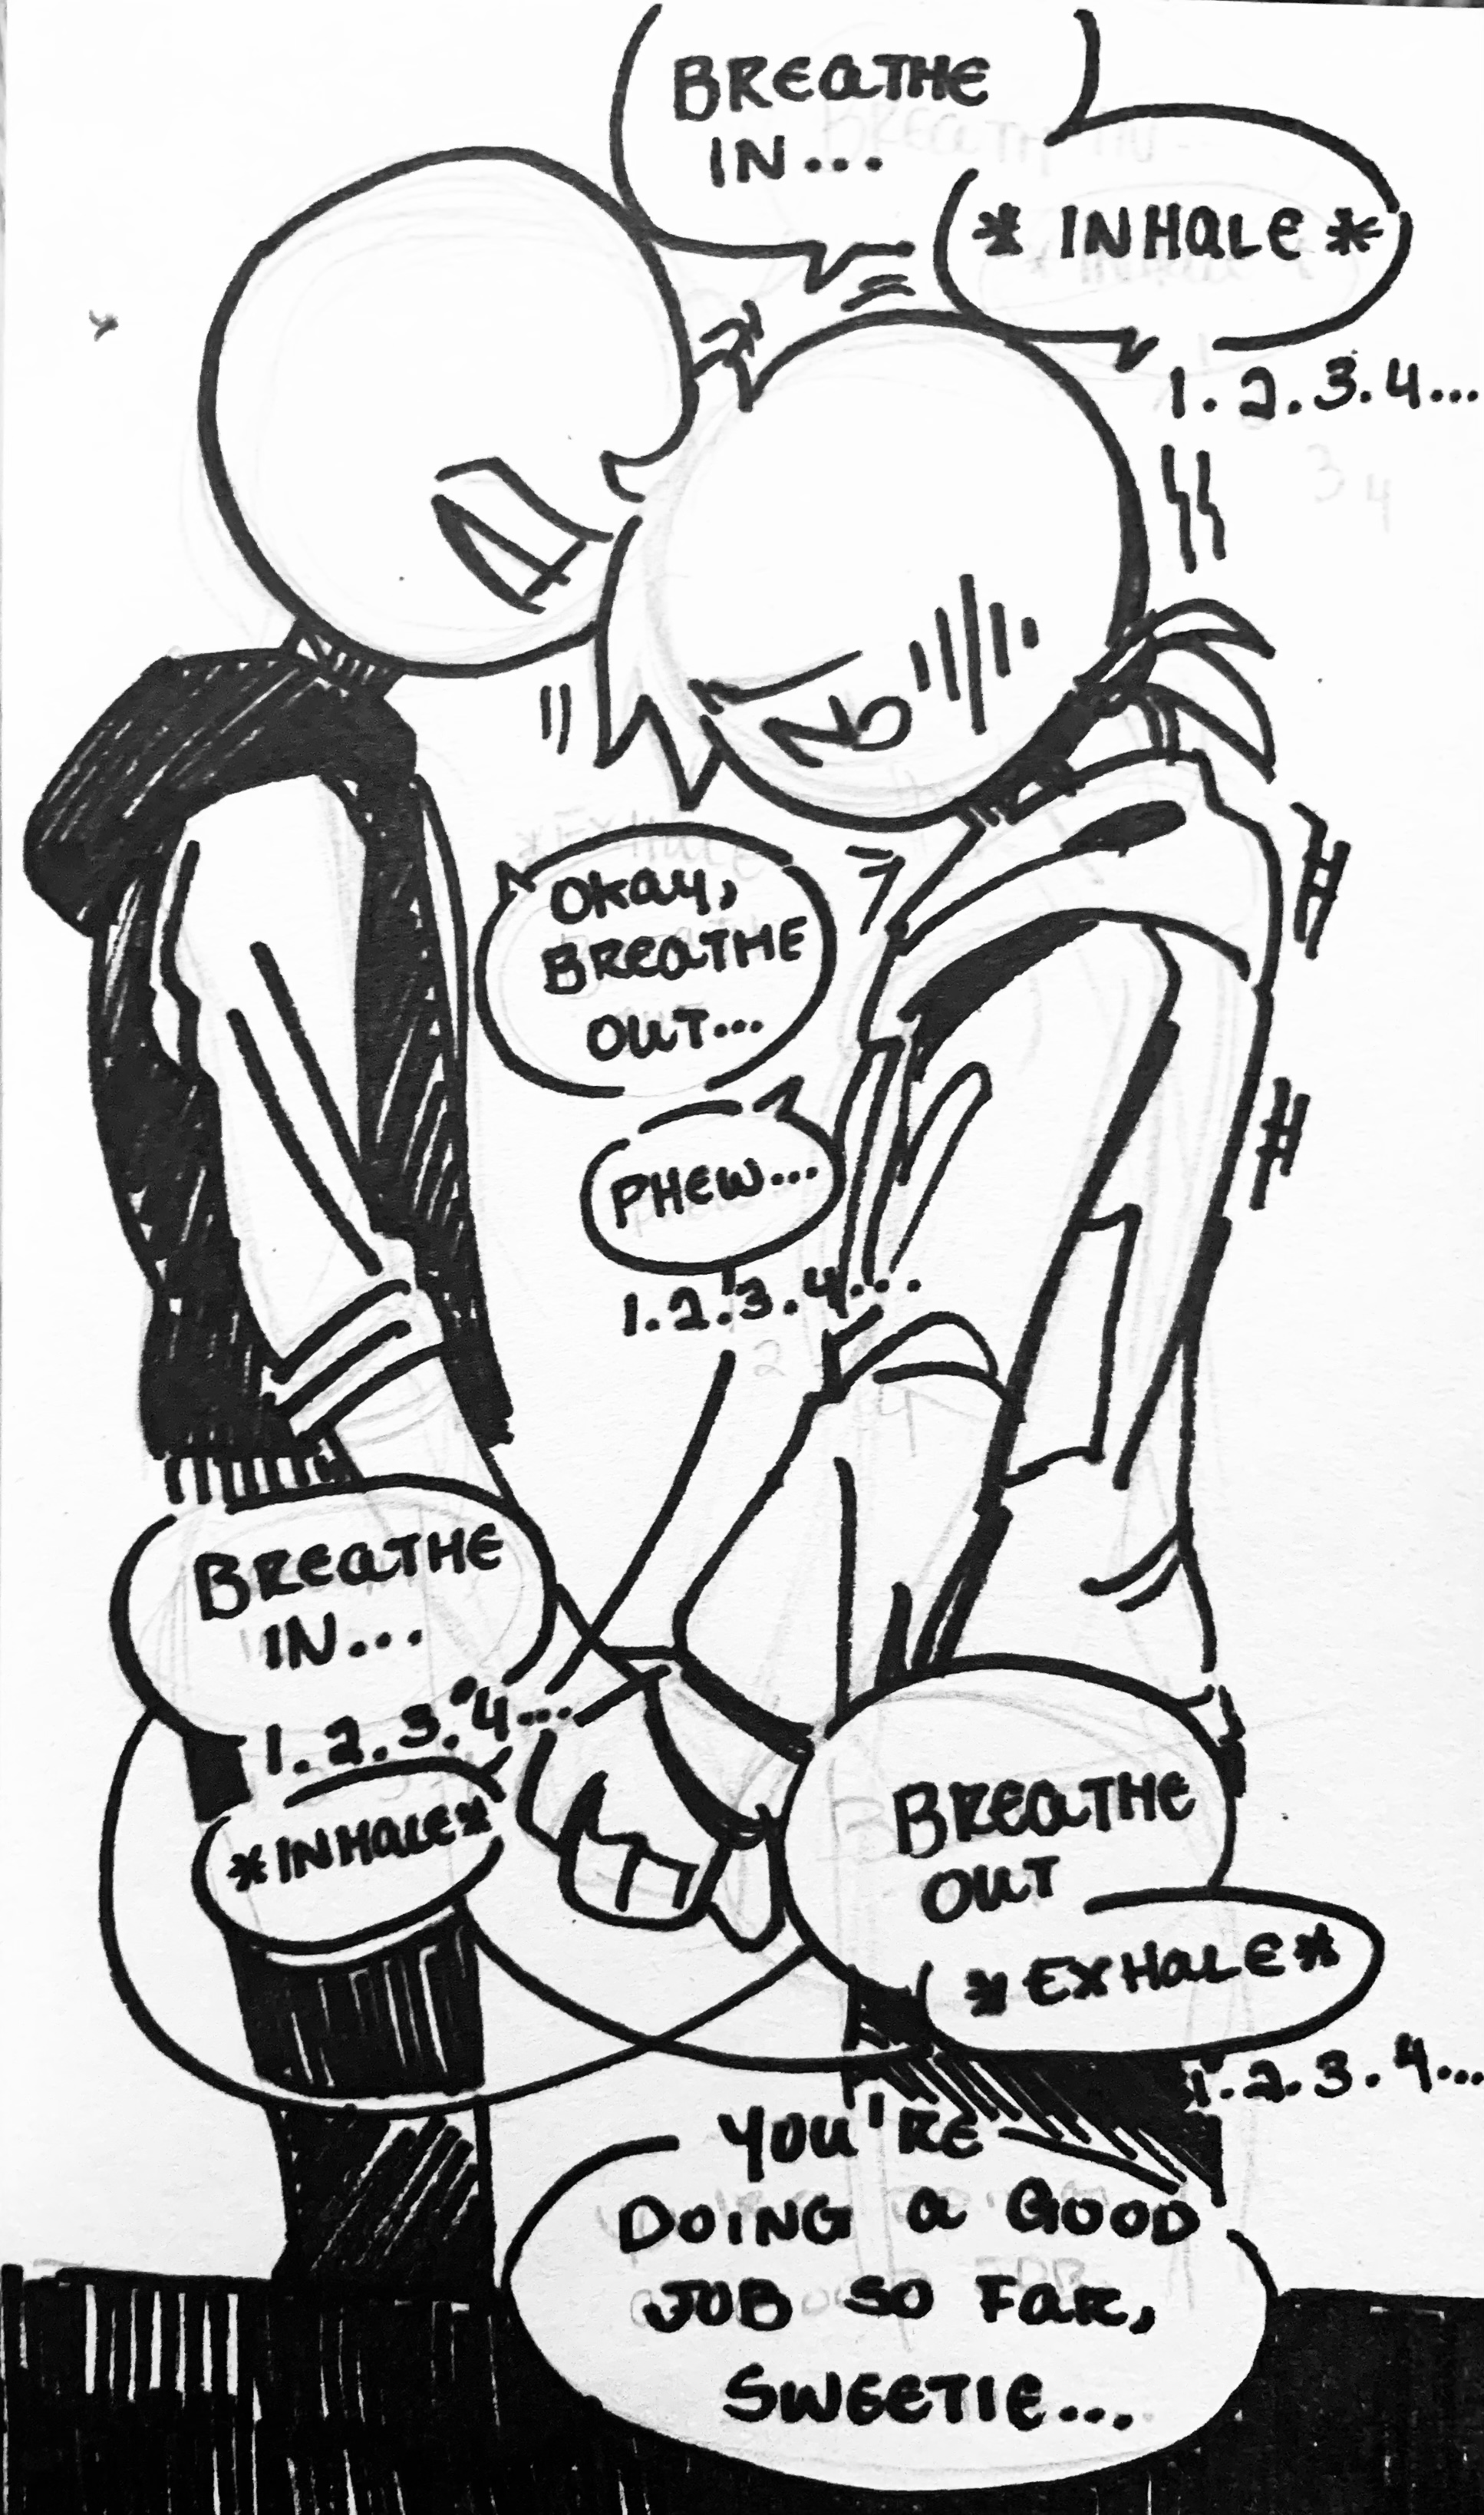 BREATHE
IN...
* INHALE *
1.2.3.4...
OKAY,
BREATHE
OUT...
PHEW...
1.2.3.4....
BREATHE
IN...
1.2.3.4...
*INHALE*
BREATHE
OUT
*EXHALE*
1.2.3.4...
YOU'RE
DOING A GOOD
JOB SO FAR,
SWEETIE...